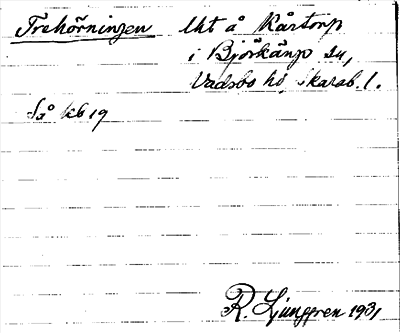 Trehörningen lht å Kårtorp
i Björkäng sn,
Vadsbo hd, Skarab. l.
Så kb 19
R. Ljunggren 1931